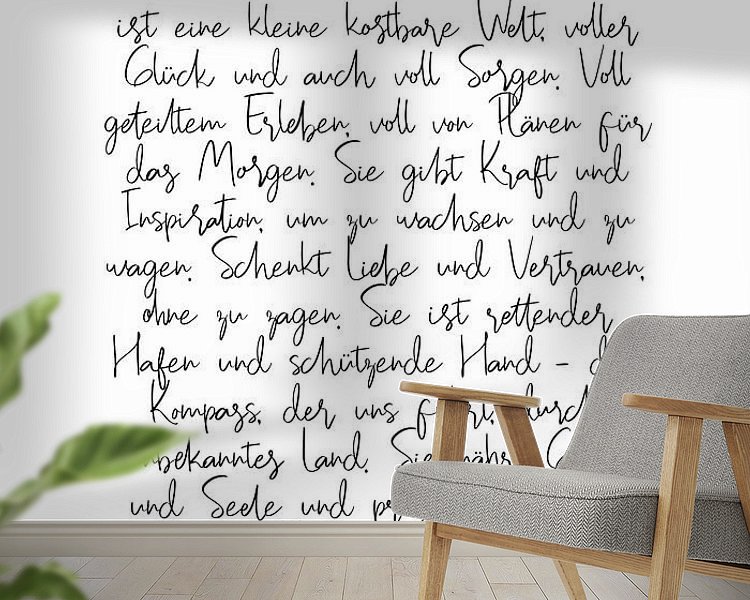 ist eine kleine kostbare Welt, voller
Glück und auch voll Sorgen. Voll
geteiltem Erleben, voll von Plänen für
das Morgen. Sie gibt Kraft und
Inspiration, um zu wachsen und zu
wagen. Schenkt Liebe und Vertrauen,
ohne zu zagen. Sie ist rettender
Hafen und schützende Hand -
Kompass, der uns
Land. Sie
und Seele und